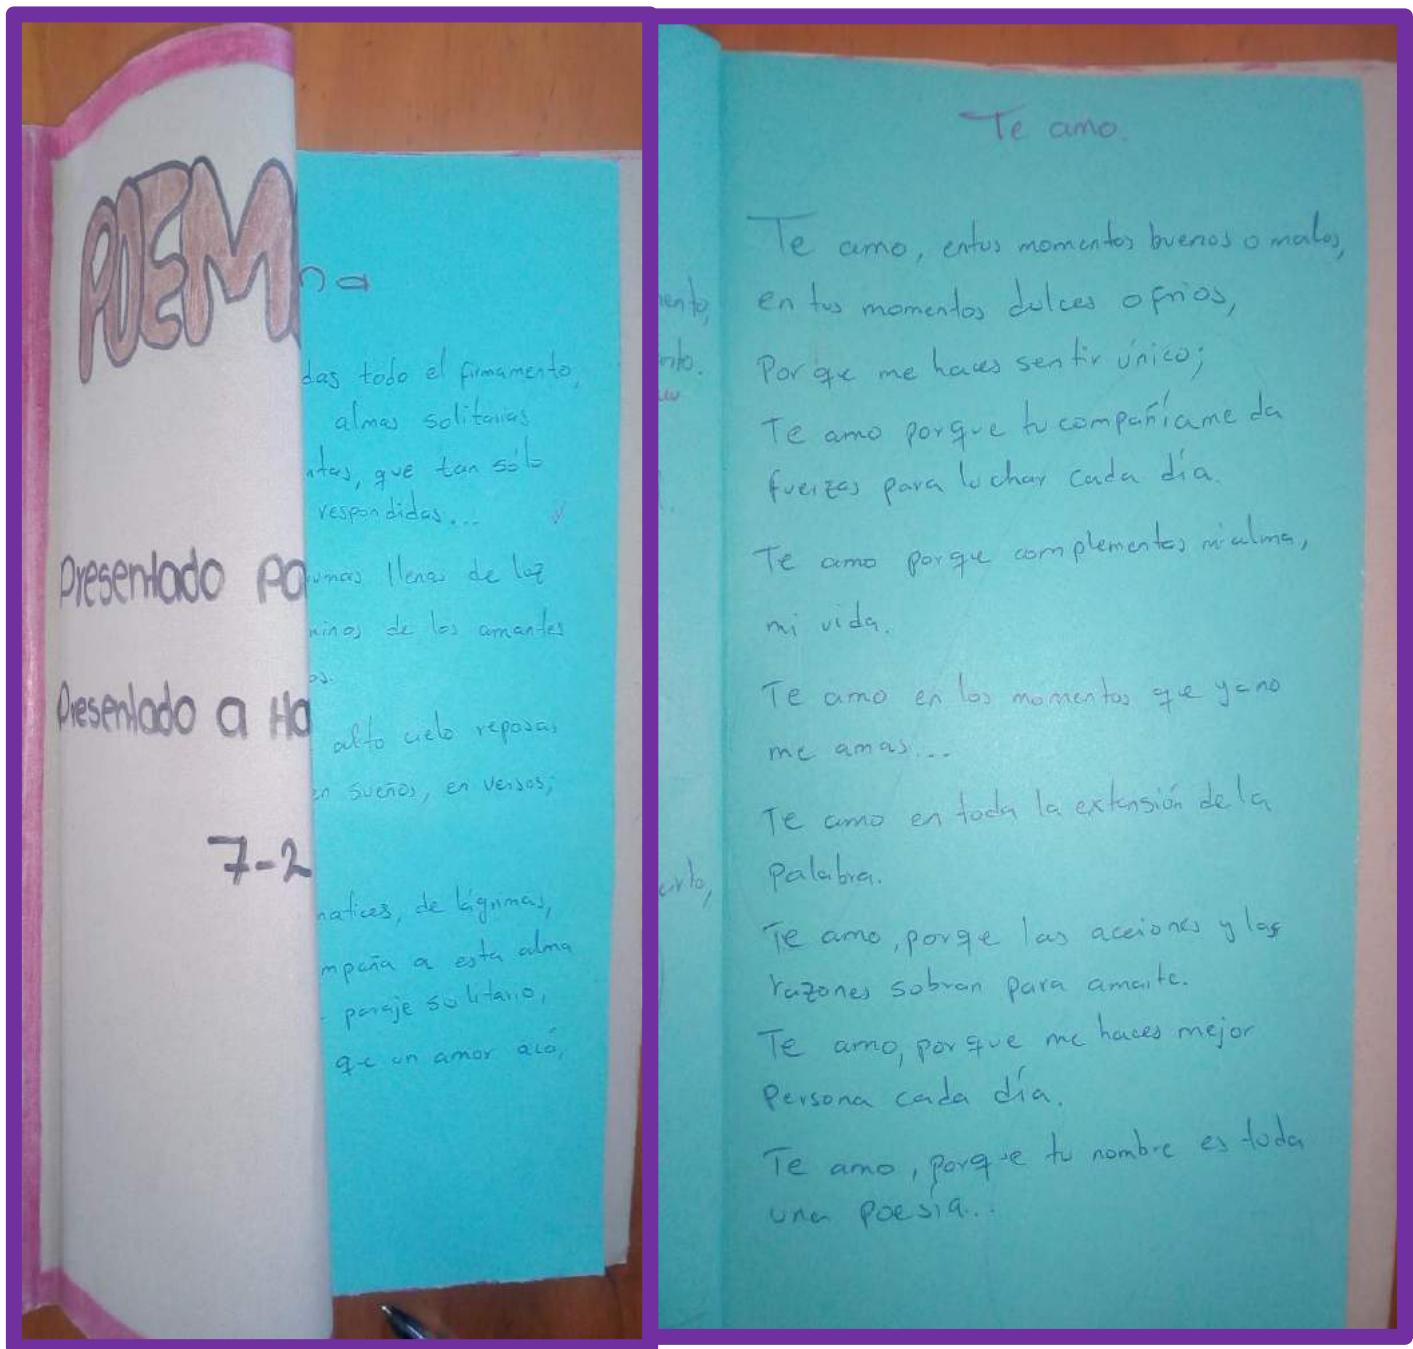 POEM
Presentado Po
Presentado a Ha
7-2
na
das todo el firmamento,
almas solitarias
ntas, que tan sólo
respondidas...
umas llenas de luz
minos de los amantes
os.
alto cielo reposas
en sueños, en versos,
matices, de lágrimas,
mpaña a esta alma
paraje solitario,
que un amor
mento,
nto.
Te amo.
Te amo, entus momentos buenos o malos,
en tus momentos dulces o frios,
Porque me haces sentir único;
Te amo porque tu compañíame da
fuerzas para luchar cada día.
Te amo porque complementas mi alma,
mi vida.
Te amo en los momentos que yano
me amas...
Te amo en toda la extensión de la
Palabra.
Te amo, porqe las acciones y las
razones sobran para amarte.
Te amo, porque me haces mejor
Persona cada día.
Te amo, porque tu nombre es toda
una poesía...